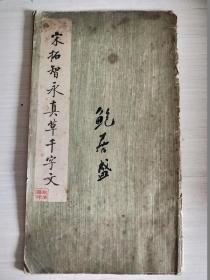 宋拓智永真草千字文
鲍居盛